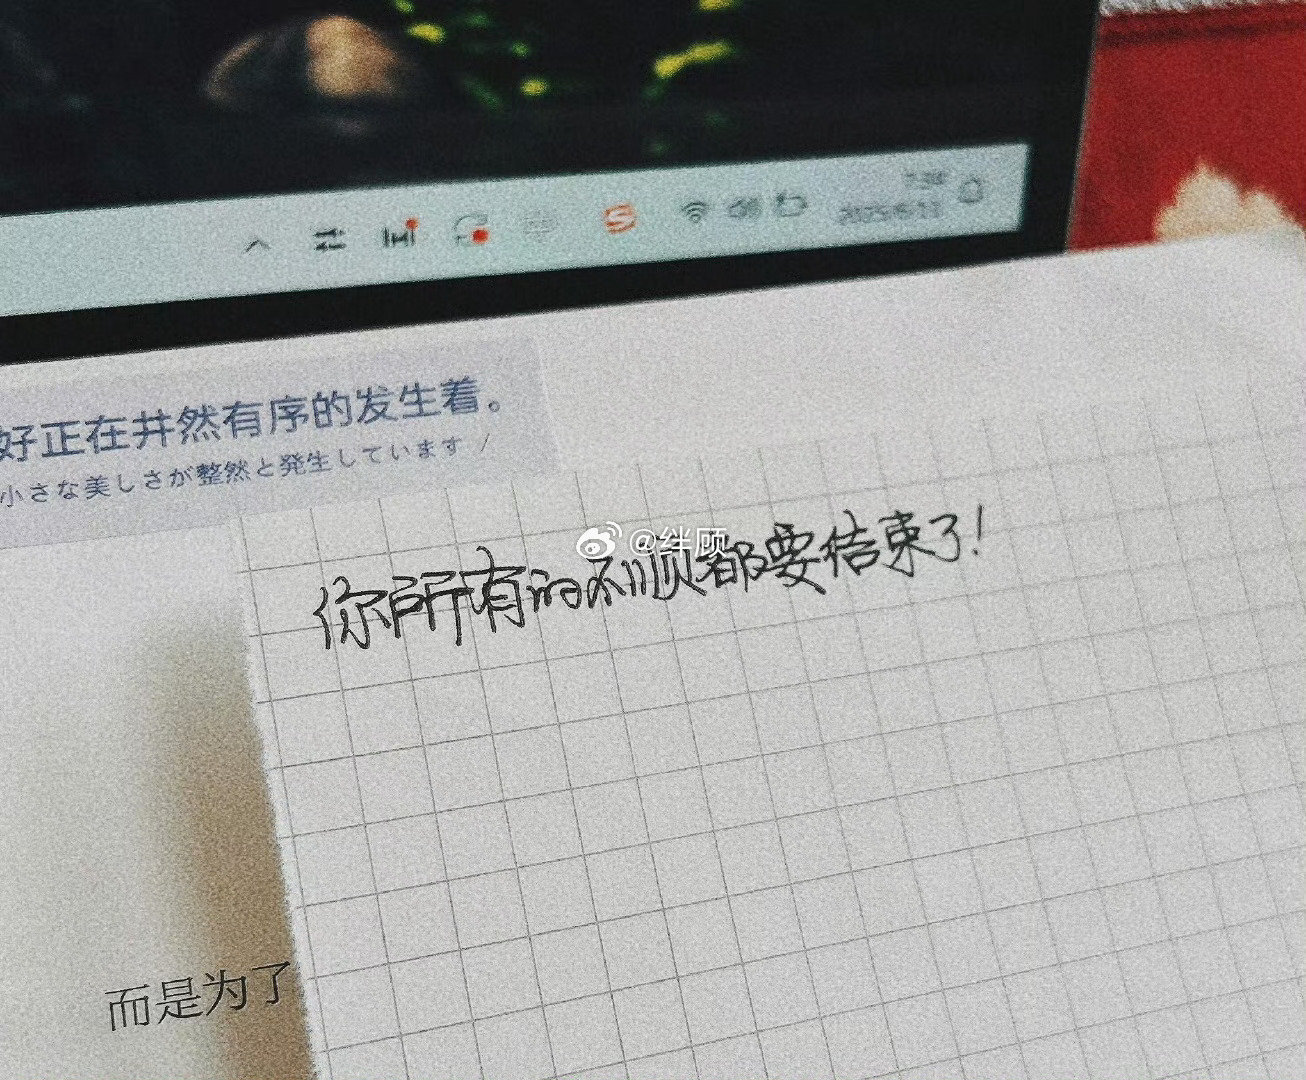 好正在井然有序的发生着。
小さな美しさが整然と発生しています /
@绊顾
你所有的不顺都要结束了!
而是为了